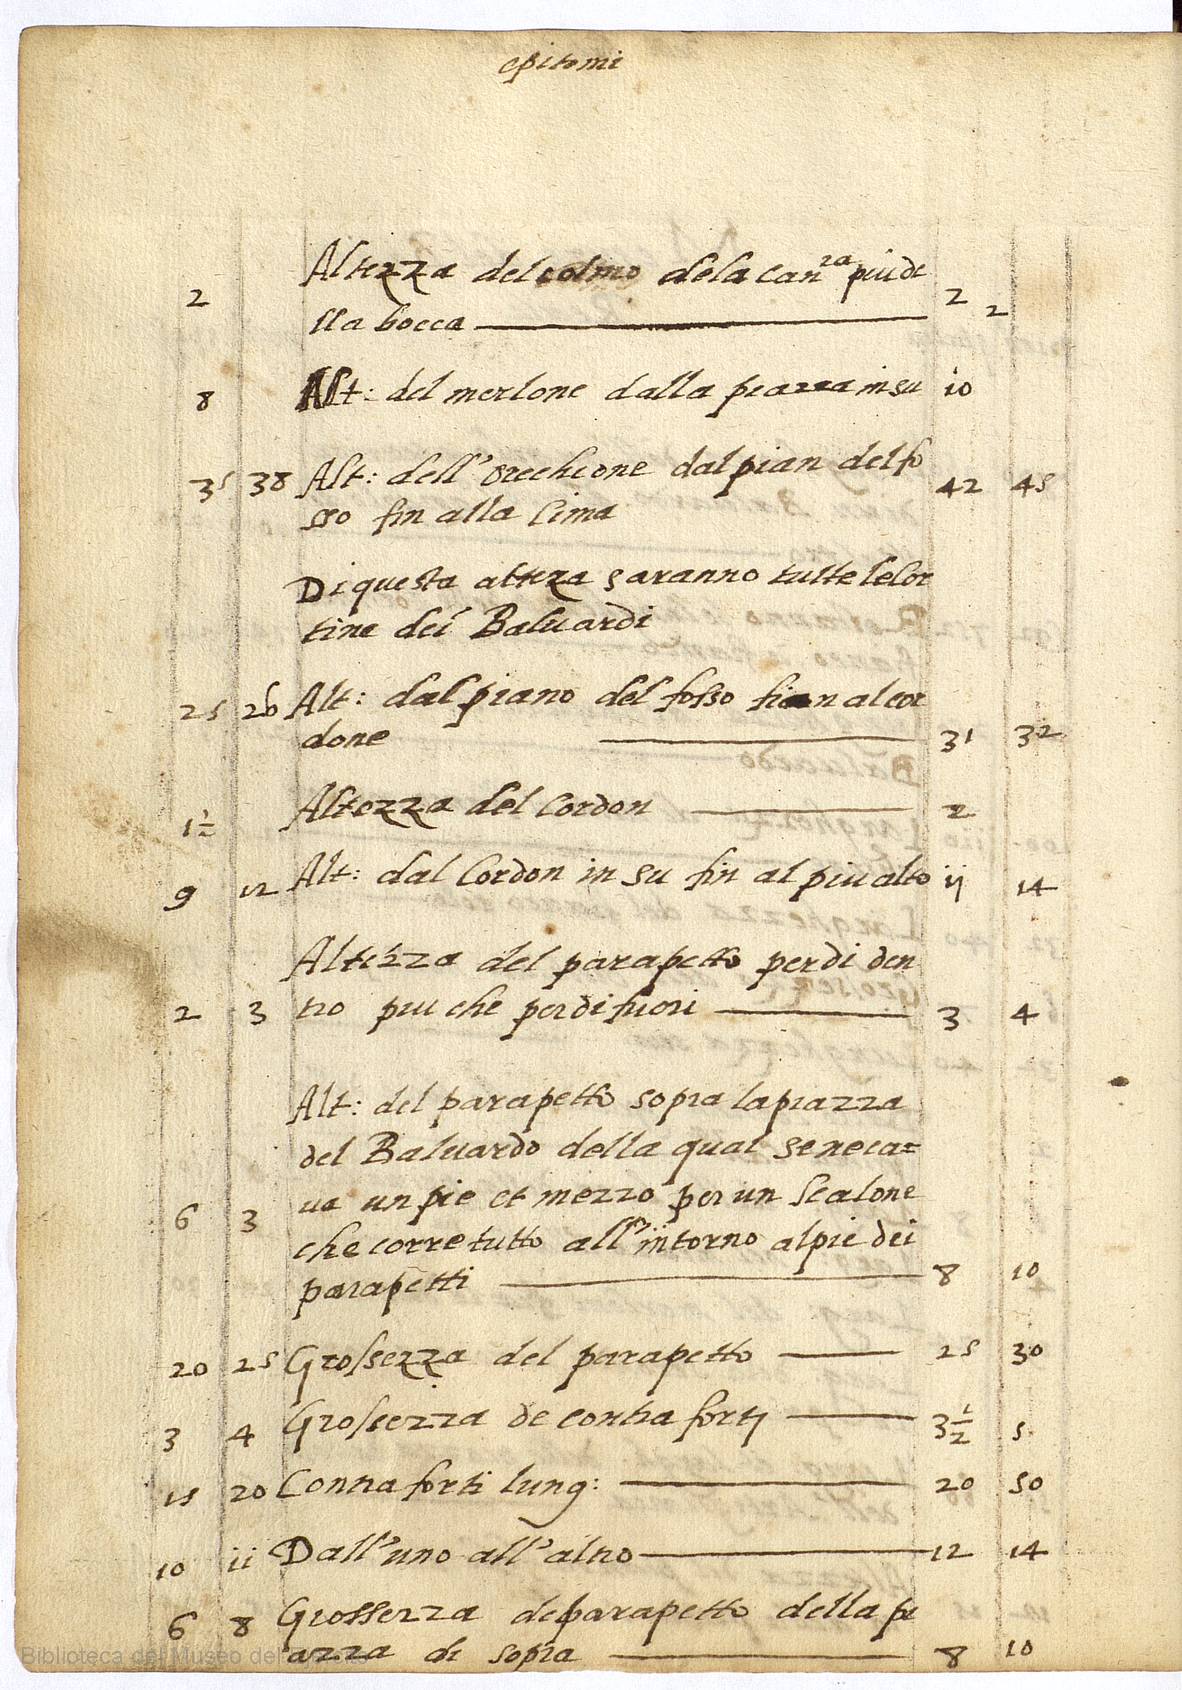 epitomi
Altezza del colmo dela can.za piu de
2 lla bocca 2 2
8 Alt: del merlone dalla piazza in su io
35 38 Alt: dell' orechione dal pian del fo 42 45
sso fin alla Cima
Di questa alteza saranno tutte le cor
tine dei Baluardi
25 26 Alt: dal piano del fosso fin al cor
done 31 32
1½ Altezza del Cordon 2
9 12 Alt: dal Cordon in su fin al piu alto ij 14
Altezza del parapetto per di den
2 3 tro piu che per di fuori 3 4
Alt: del parapetto sopra la piazza
del Baluardo della qual se ne ca=
6 3 ua un pie et mezzo per un Scalone
che corre tutto all' intorno al pie dei
parapetti 8 10
20 25 Grossezza del parapetto 25 30
3 4 Grossezza de contra fortj 3½ 5
15 20 Contra forti lung: 20 50
10 ii Dall' uno all' altro 12 14
6 8 Grossezza de parapetto della pi
azza di sopra 8 10
Biblioteca del Museo del